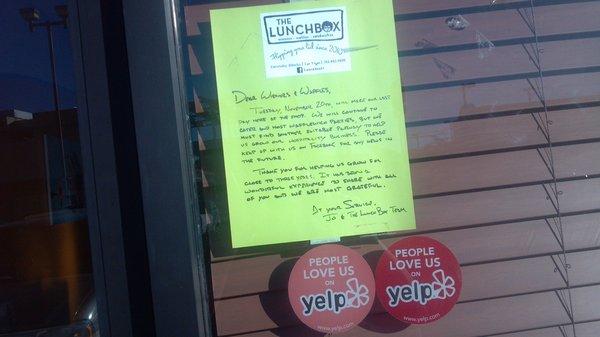 THE
LUNCHBOX
Flipping your lid since 2010
DEAR WIENERS & WAFFLES,
TUESDAY, NOVEMBER 20TH, WILL MARK OUR LAST
DAY HERE AT THE SHOP. WE WILL CONTINUE TO
CATER AND HOST WAFFLEWICH PARTIES, BUT WE
MUST FIND ANOTHER SUITABLE PATHWAY TO HELP
US GROW OUR HOSPITALITY BUSINESS. PLEASE
KEEP UP WITH US ON FACEBOOK FOR ANY NEWS IN
THE FUTURE.
THANK YOU FOR HELPING US GROW FOR
CLOSE TO THREE YEARS. IT HAS BEEN A
WONDERFUL EXPERIENCE TO SHARE WITH ALL
OF YOU AND WE ARE MOST GRATEFUL.
AT YOUR SERVICE,
JO & THE LUNCH BOX TEAM
PEOPLE
LOVE US
ON
yelp
www.yelp.com
PEOPLE
LOVE US
ON
yelp
www.yelp.com